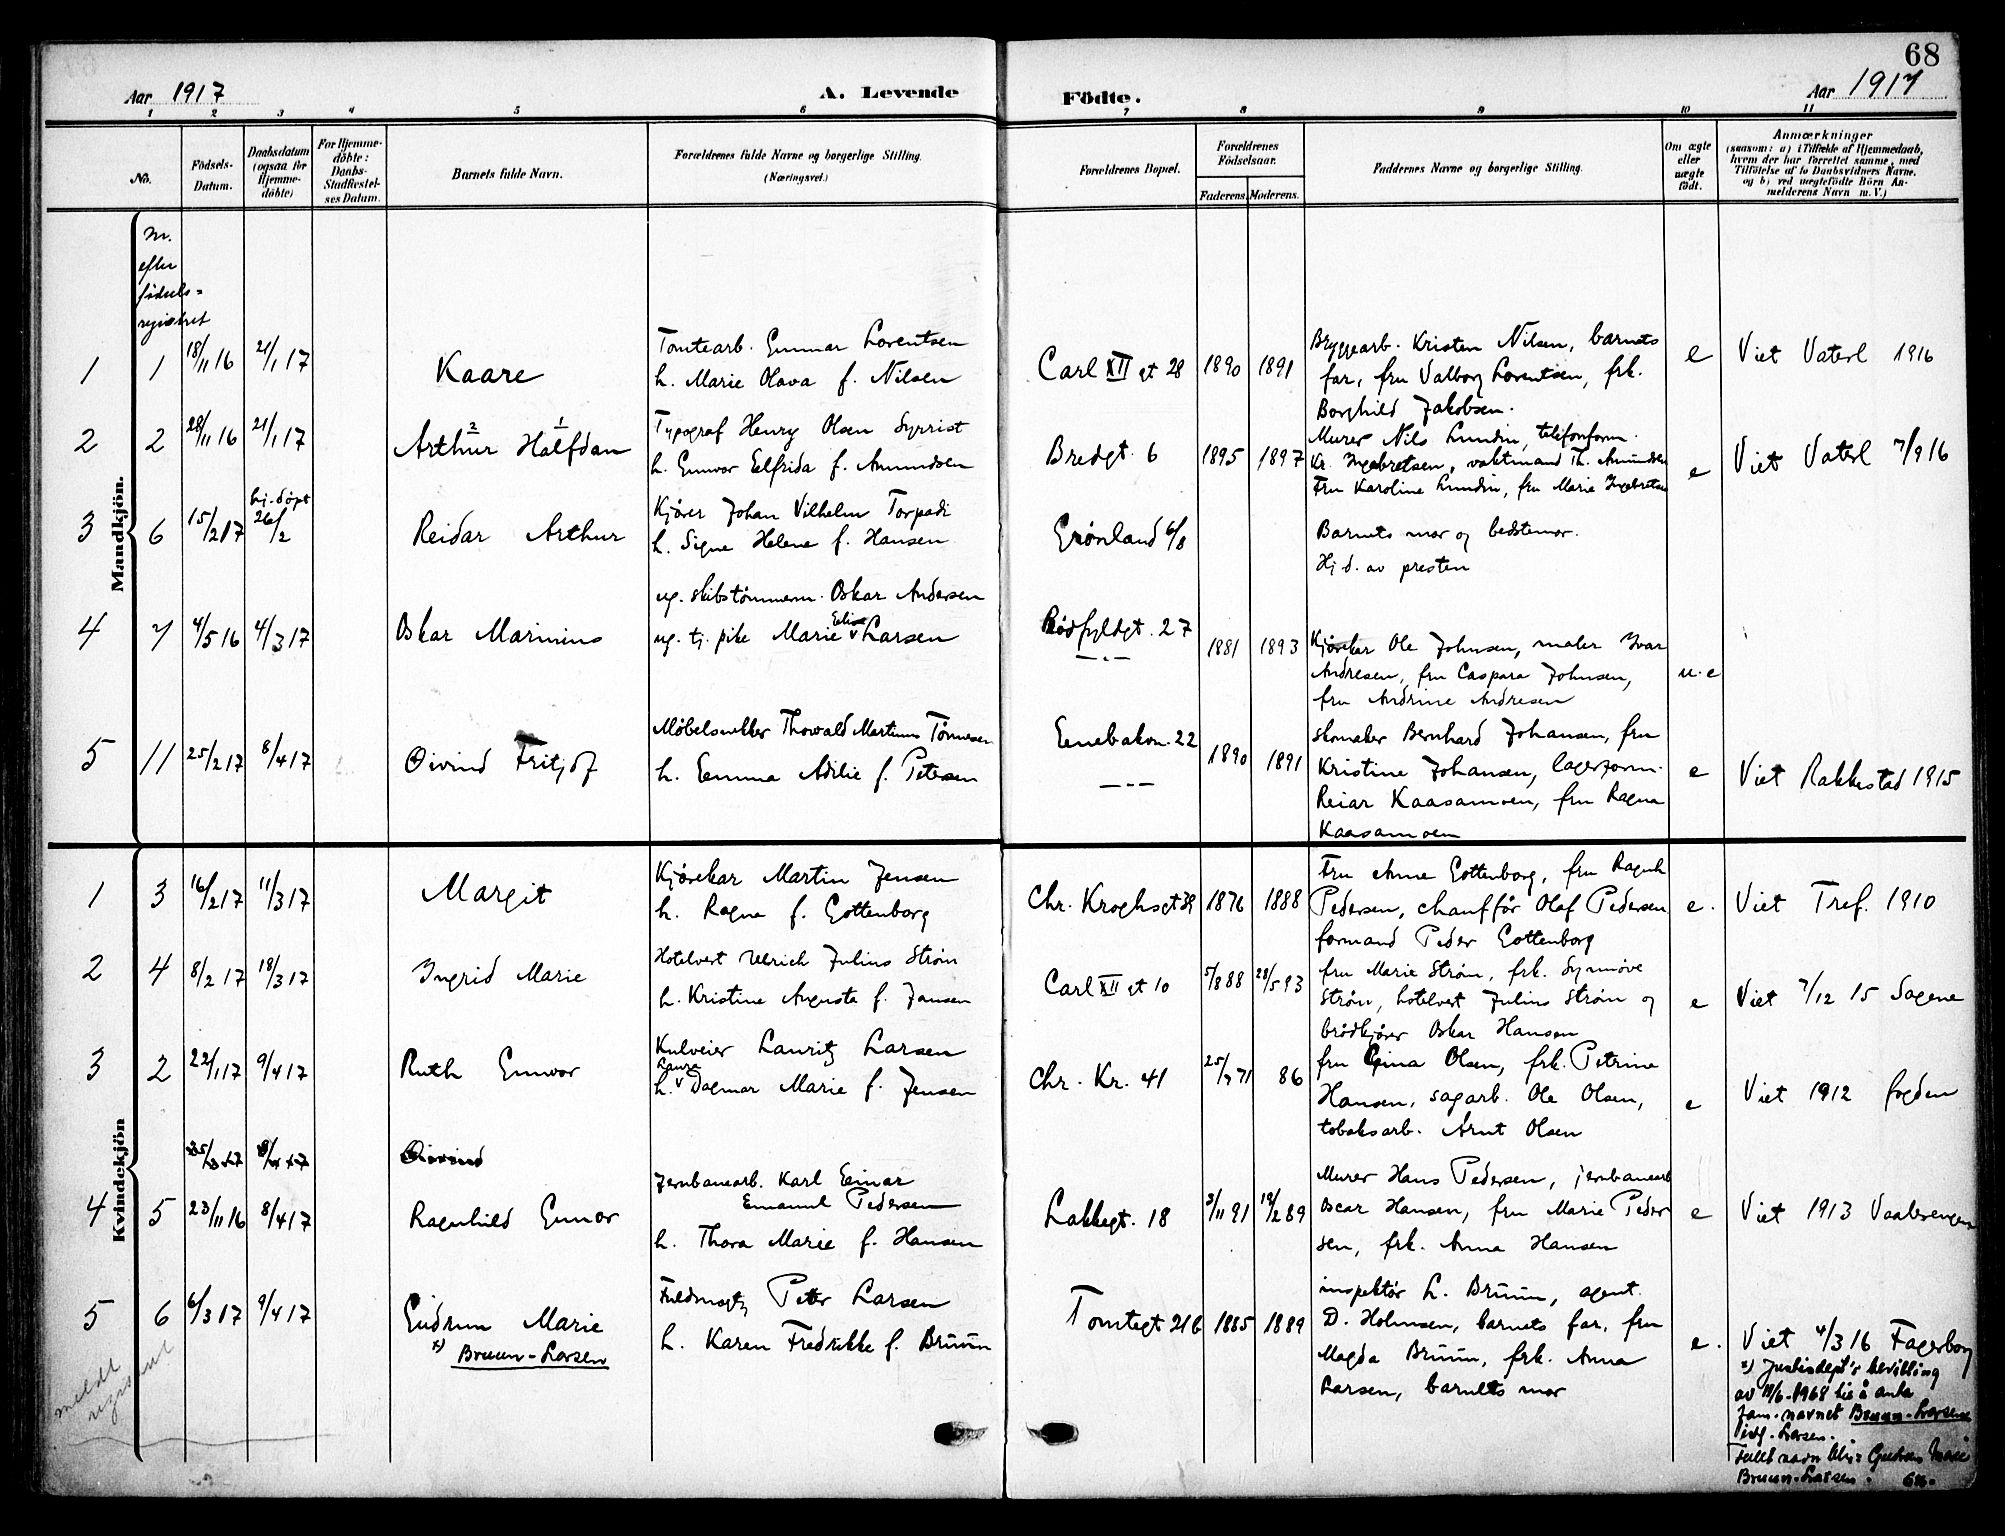 68
Aar 1917
A. Levende
Födte.
Aar 1917
1 2 3 4 5 6 7 8 9 10 11
No.
Födsels-
Datum.
Daabsdatum
(ogsaa for
Hjemme-
döbte)
For Hjemme-
döbte:
Daabs-
Stadfæstel-
ses Datum.
Barnets fulde Navn.
Forældrenes fulde Navne og borgerlige Stilling.
(Næringsvei.)
Forældrenes Bopæl.
Forældrenes
Födselsaar.
Faderens. Moderens.
Faddernes Navne og borgerlige Stilling.
Om ægte
eller
uægte
födt.
Anmærkninger
(saasom: a) i Tilfælde af Hjemmedaab,
hvem der har forrettet samme, med
Tilföielse af to Daabsvidners Navne,
og b) ved uægtefödte Börn An-
melderens Navn m. V.)
Nr.
efter
fødsels=
registret
Mandkjön.
1 1 18/11 16 21/1 17 Kaare
Tomtearb. Gunnar Lorentsen
h. Marie Olava f. Nilsen
Carl XII gt 28 1890 1891
Bryggearb. Kristen Nilsen, barnets
far, fru Valborg Lorentsen, frk.
Borghild Jakobsen.
e Viet Vaterl 1916
2 2 28/11 16 21/1 17 Arthur 2 Halfdan 1
Typograf Henry Olsen Syrrist
h. Gunvor Elfrida f. Amundsen
Bredgt. 6 1895 1897
Murer Nils Lundin, telefonform.
Kr. Ingebretsen, vaktmand Th. Amundsen
Fru Karoline Lundin, fru Marie Ingebretsen
e Viet Vaterl 7/9 16
3 6 15/2 17 hj. døpt 26/2 Reidar Arthur
Kjører Johan Vilhelm Torpadi
h. Signe Helene f. Hansen
Grønland 6/8
Barnets mor og bedstemor.
Hj d. av presten
4 7 4/5 16 4/3 17 Oskar Marinius
ug. skibstømmerm. Oskar Andersen
ug. tj. pike Marie Elise Larsen
Rødfyldgt. 27
— " — 1881 1893
Kjørekar Ole Johnsen, maler Ivar
Andresen, fru Caspara Johnsen,
fru Andrine Andresen
u.e
5 11 25/2 17 8/4 17 Øivind Fritjof
Møbelsnekker Thorvald Martinus Tønnesen
h. Emma Adilie f. Petersen
Enebakkv. 22
— " — 1890 1891
skomaker Bernhard Johansen, fru
Kristine Johansen, lagerform.
Reiar Kaasamoen, fru Ragna
Kaasamoen
e Viet Rakkestad 1915
Kvindekjön
1 3 16/2 17 11/3 17 Margit
Kjørekar Martin Jensen
h. Ragna f. Gottenborg
Chr. Kroghsgt 39 1876 1888
Fru Anna Gottenborg, fru Ragnh
Pedersen, chauffør Olaf Pedersen
formand Peder Gottenborg
e. Viet Tref. 1910
2 4 8/2 17 18/3 17 Ingrid Marie
Hotelvert Ulrich Julius Strøm
h. Kristine Augusta f. Jansen
Carl XII gt 10 5/8 88 28/5 93
fru Marie Strøm, frk. Synnøve
Strøm, hotelvert Julius Strøm og
brødkjører Oskar Hansen
e Viet 7/12 15 Sagene
3 2 22/1 17 9/4 17 Ruth Gunvor
Kulveier Lauritz Larsen
h. Laura Dagmar Marie f. Jensen
Chr. Kr. 41 25/7 71 86
fru Gina Olsen, frk. Petrine
Hansen, sagarb. Ole Olsen,
tobaksarb. Arnt Olsen
e Viet 1912 fogden
25/2 17 8/4 17 Øivind
4 5 23/11 16 8/4 17 Ragnhild Gunvor
Jernbanearb. Karl Einar
Emanuel Pedersen
h. Thora Marie f. Hansen
Lakkegt. 18 3/11 91 19/2 89
Murer Hans Pedersen, jernbanearb
Oscar Hansen, fru Marie Peder
sen, frk. Anna Hansen
e Viet 1913 Vaalerengen
5 6 6/3 17 9/4 17 Gudrun Marie
x) Bruun-Larsen
Fuldmegtg Peter Larsen
h. Karen Fredrikke f. Bruun
Tomtegt 21b 1885 1889
inspektør L. Bruun, agent
D. Holmsen, barnets far, fru
Magda Bruun, frk. Anna
Larsen, barnets mor
e. Viet 4/3 16 Fagerborg
x) Justisdept's bevilling
av 11/6-1968 til å anta
fam.navnet Bruun-Larsen
istf. Larsen.
Fullt navn blir: Gudrun Marie
Bruun-Larsen.
meldt